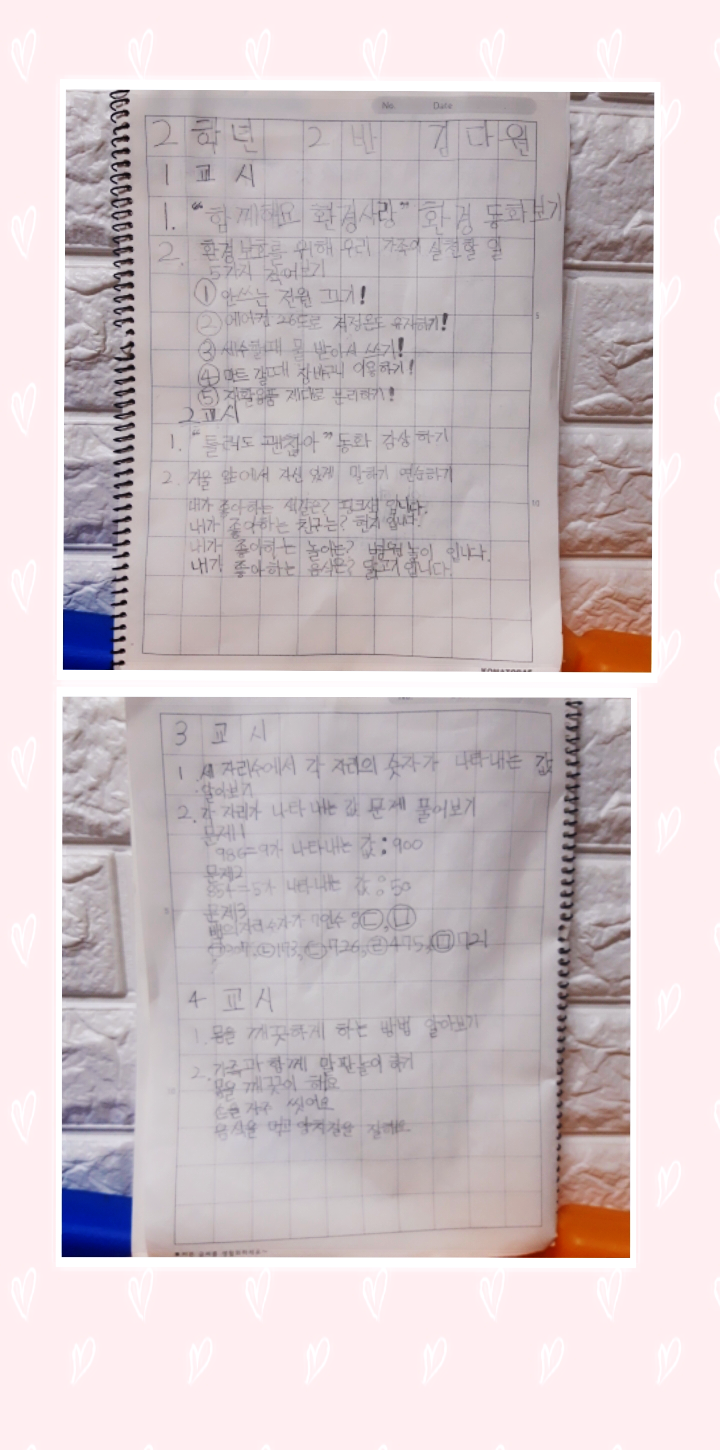 No. Date
2학년 2반 김다원
1 교시
1. "함께해요 환경사랑" 환경 동화보기
2. 환경보호를 위해 우리 가족이 실천할 일
5가지 적어보기
① 안쓰는 전원 끄기!
② 에어컨 26도로 적정온도 유지하기!
③ 세수할때 물 받아서 쓰기!
④ 마트 갈때 장바구니 이용하기!
⑤ 재활용품 제대로 분리하기!
2교시
1. "틀려도 괜찮아" 동화 감상 하기
2. 거울 앞에서 자신 있게 말하기 연습하기
내가 좋아하는 색깔은? 핑크색 입니다.
내가 좋아하는 친구는? 현지입니다.
내가 좋아하는 놀이는? 병원놀이 입니다.
내가 좋아하는 음식은? 물고기 입니다.
3 교 시
1 세 자리수에서 각 자리의 숫자가 나타내는 값
알아보기
2. 각 자리가 나타내는 값 문제 풀어보기
문제1
986=9가 나타내는 값:900
문제2
854=5가 나타내는 값:50
문제3
백의자리 숫자가 7인수 ㉢,㉤
193, 726, ㉣475, ㉤721
4 교 시
1. 몸을 깨끗하게 하는 방법 알아보기
2. 가족과 함께 말판놀이 하기
몸을 깨끗이 해요
손을 자주 씻어요
음식을 먹고 양치질을 잘해요